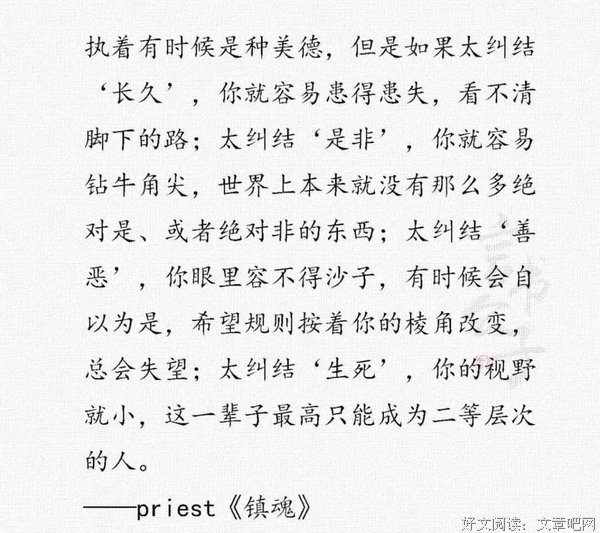 执着有时候是种美德，但是如果太纠结
‘长久’，你就容易患得患失，看不清
脚下的路；太纠结‘是非’，你就容易
钻牛角尖，世界上本来就没有那么多绝
对是、或者绝对非的东西；太纠结‘善
恶’，你眼里容不得沙子，有时候会自
以为是，希望规则按着你的棱角改变，
总会失望；太纠结‘生死’，你的视野
就小，这一辈子最高只能成为二等层次
的人。
——priest《镇魂》
好文阅读：文章吧网